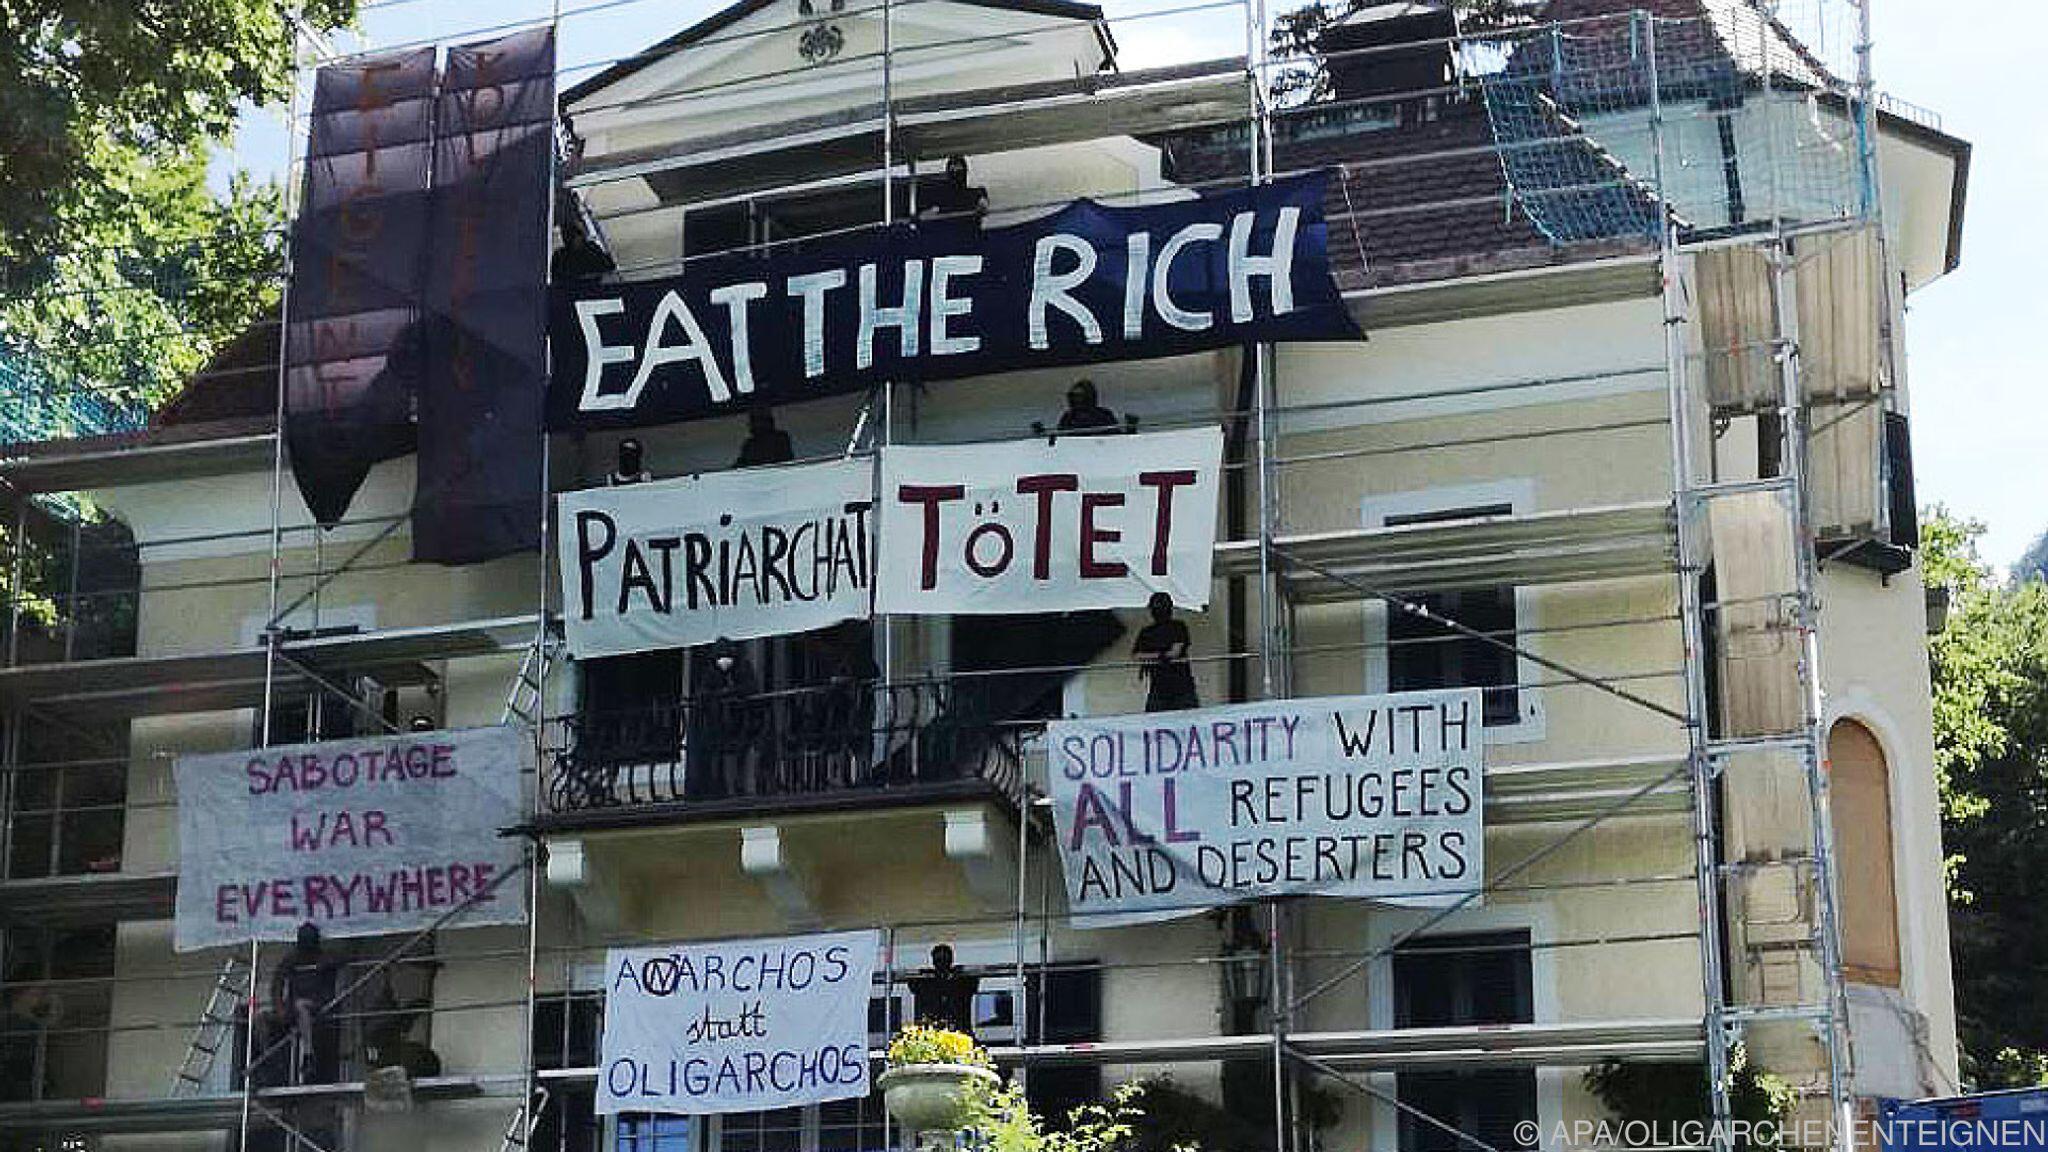 EAT THE RICH
PATRIARCHAT TÖTET
SABOTAGE
WAR
EVERYWHERE
SOLIDARITY WITH
ALL REFUGEES
AND DESERTERS
ANARCHOS
statt
OLIGARCHOS
© APA/OLIGARCHENENTEIGNEN